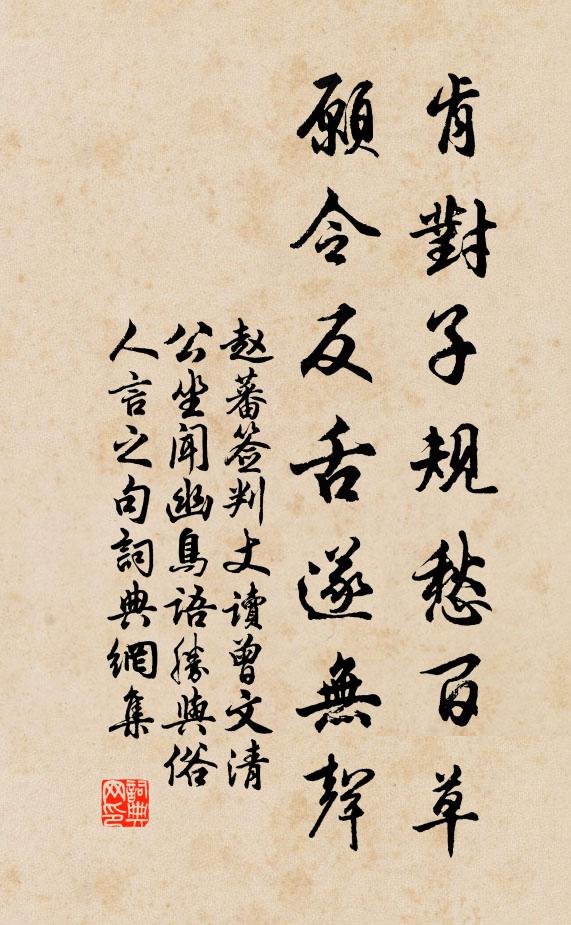 肯對子規愁百草
願令反舌遂無聲
赵蕃签判丈讀曾文清
公坐聞幽鳥語勝與俗
人言之句詞典網集
詞典網印